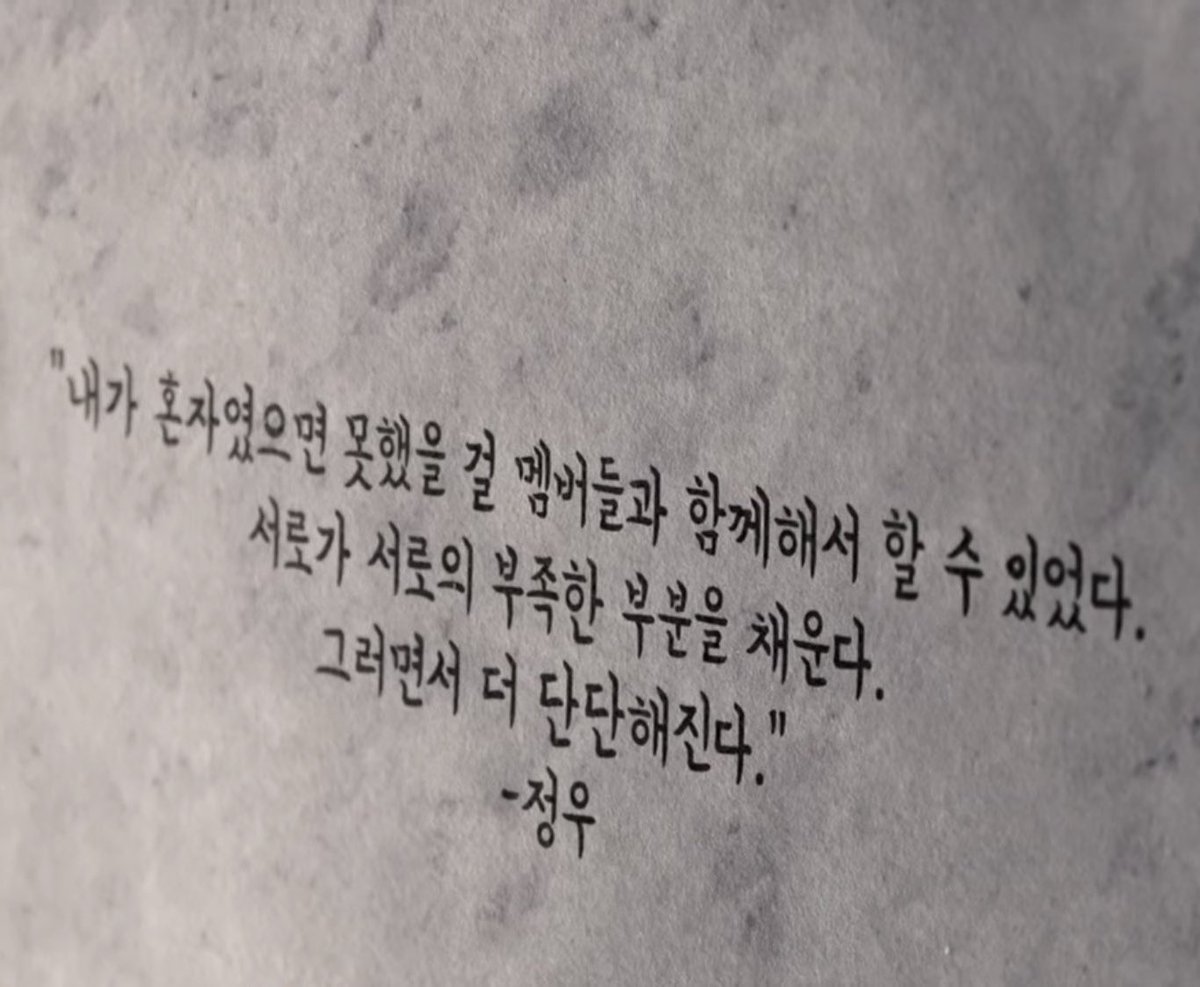 "내가 혼자였으면 못했을 걸 멤버들과 함께해서 할 수 있었다.
서로가 서로의 부족한 부분을 채운다.
그러면서 더 단단해진다."
-정우